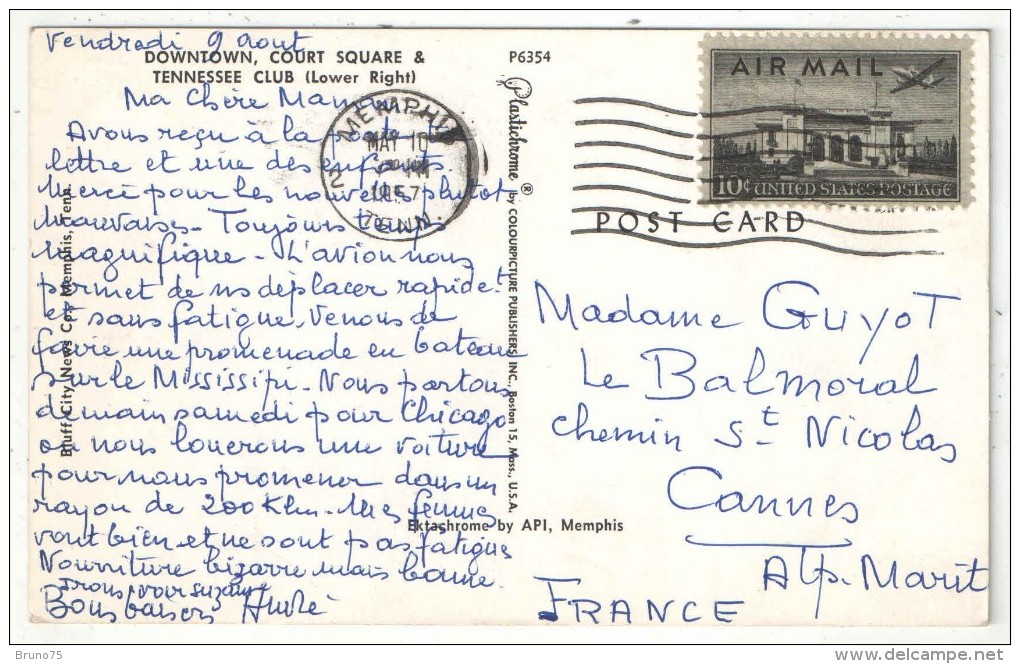 Vendredi 9 aout
DOWNTOWN, COURT SQUARE &
TENNESSEE CLUB (Lower Right)
P6354
Ma Chère Maman
Avons reçu à la poste ta
lettre et une des enfants.
Merci pour les nouvelles plutot
mauvaises - Toujours temps
magnifique - L'avion nous
permet de ns déplacer rapidet
et sans fatigue. Venons de
faire une promenade en bateau
sur le Mississipi - Nous partons
demain samedi pour Chicago
ou nous louerons une voiture
pour nous promener dans un
rayon de 200 Klm - Mes femmes
vont bien et ne sont pas fatigues
Nourriture bizarre mais bonne.
irons voir suzanne
Bons baisers André
MEMPHIS
MAY 10
1957
TENN.
Bluff City News Co., Memphis, Tenn.
Plastichrome ® by COLOURPICTURE PUBLISHERS, INC., Boston 15, Mass., U.S.A.
Ektachrome by API, Memphis
AIR MAIL
10¢ UNITED STATES POSTAGE
POST CARD
Madame GUYOT
Le Balmoral
chemin St Nicolas
Cannes
Alp. Marit
FRANCE
Bruno75
delcampe.net